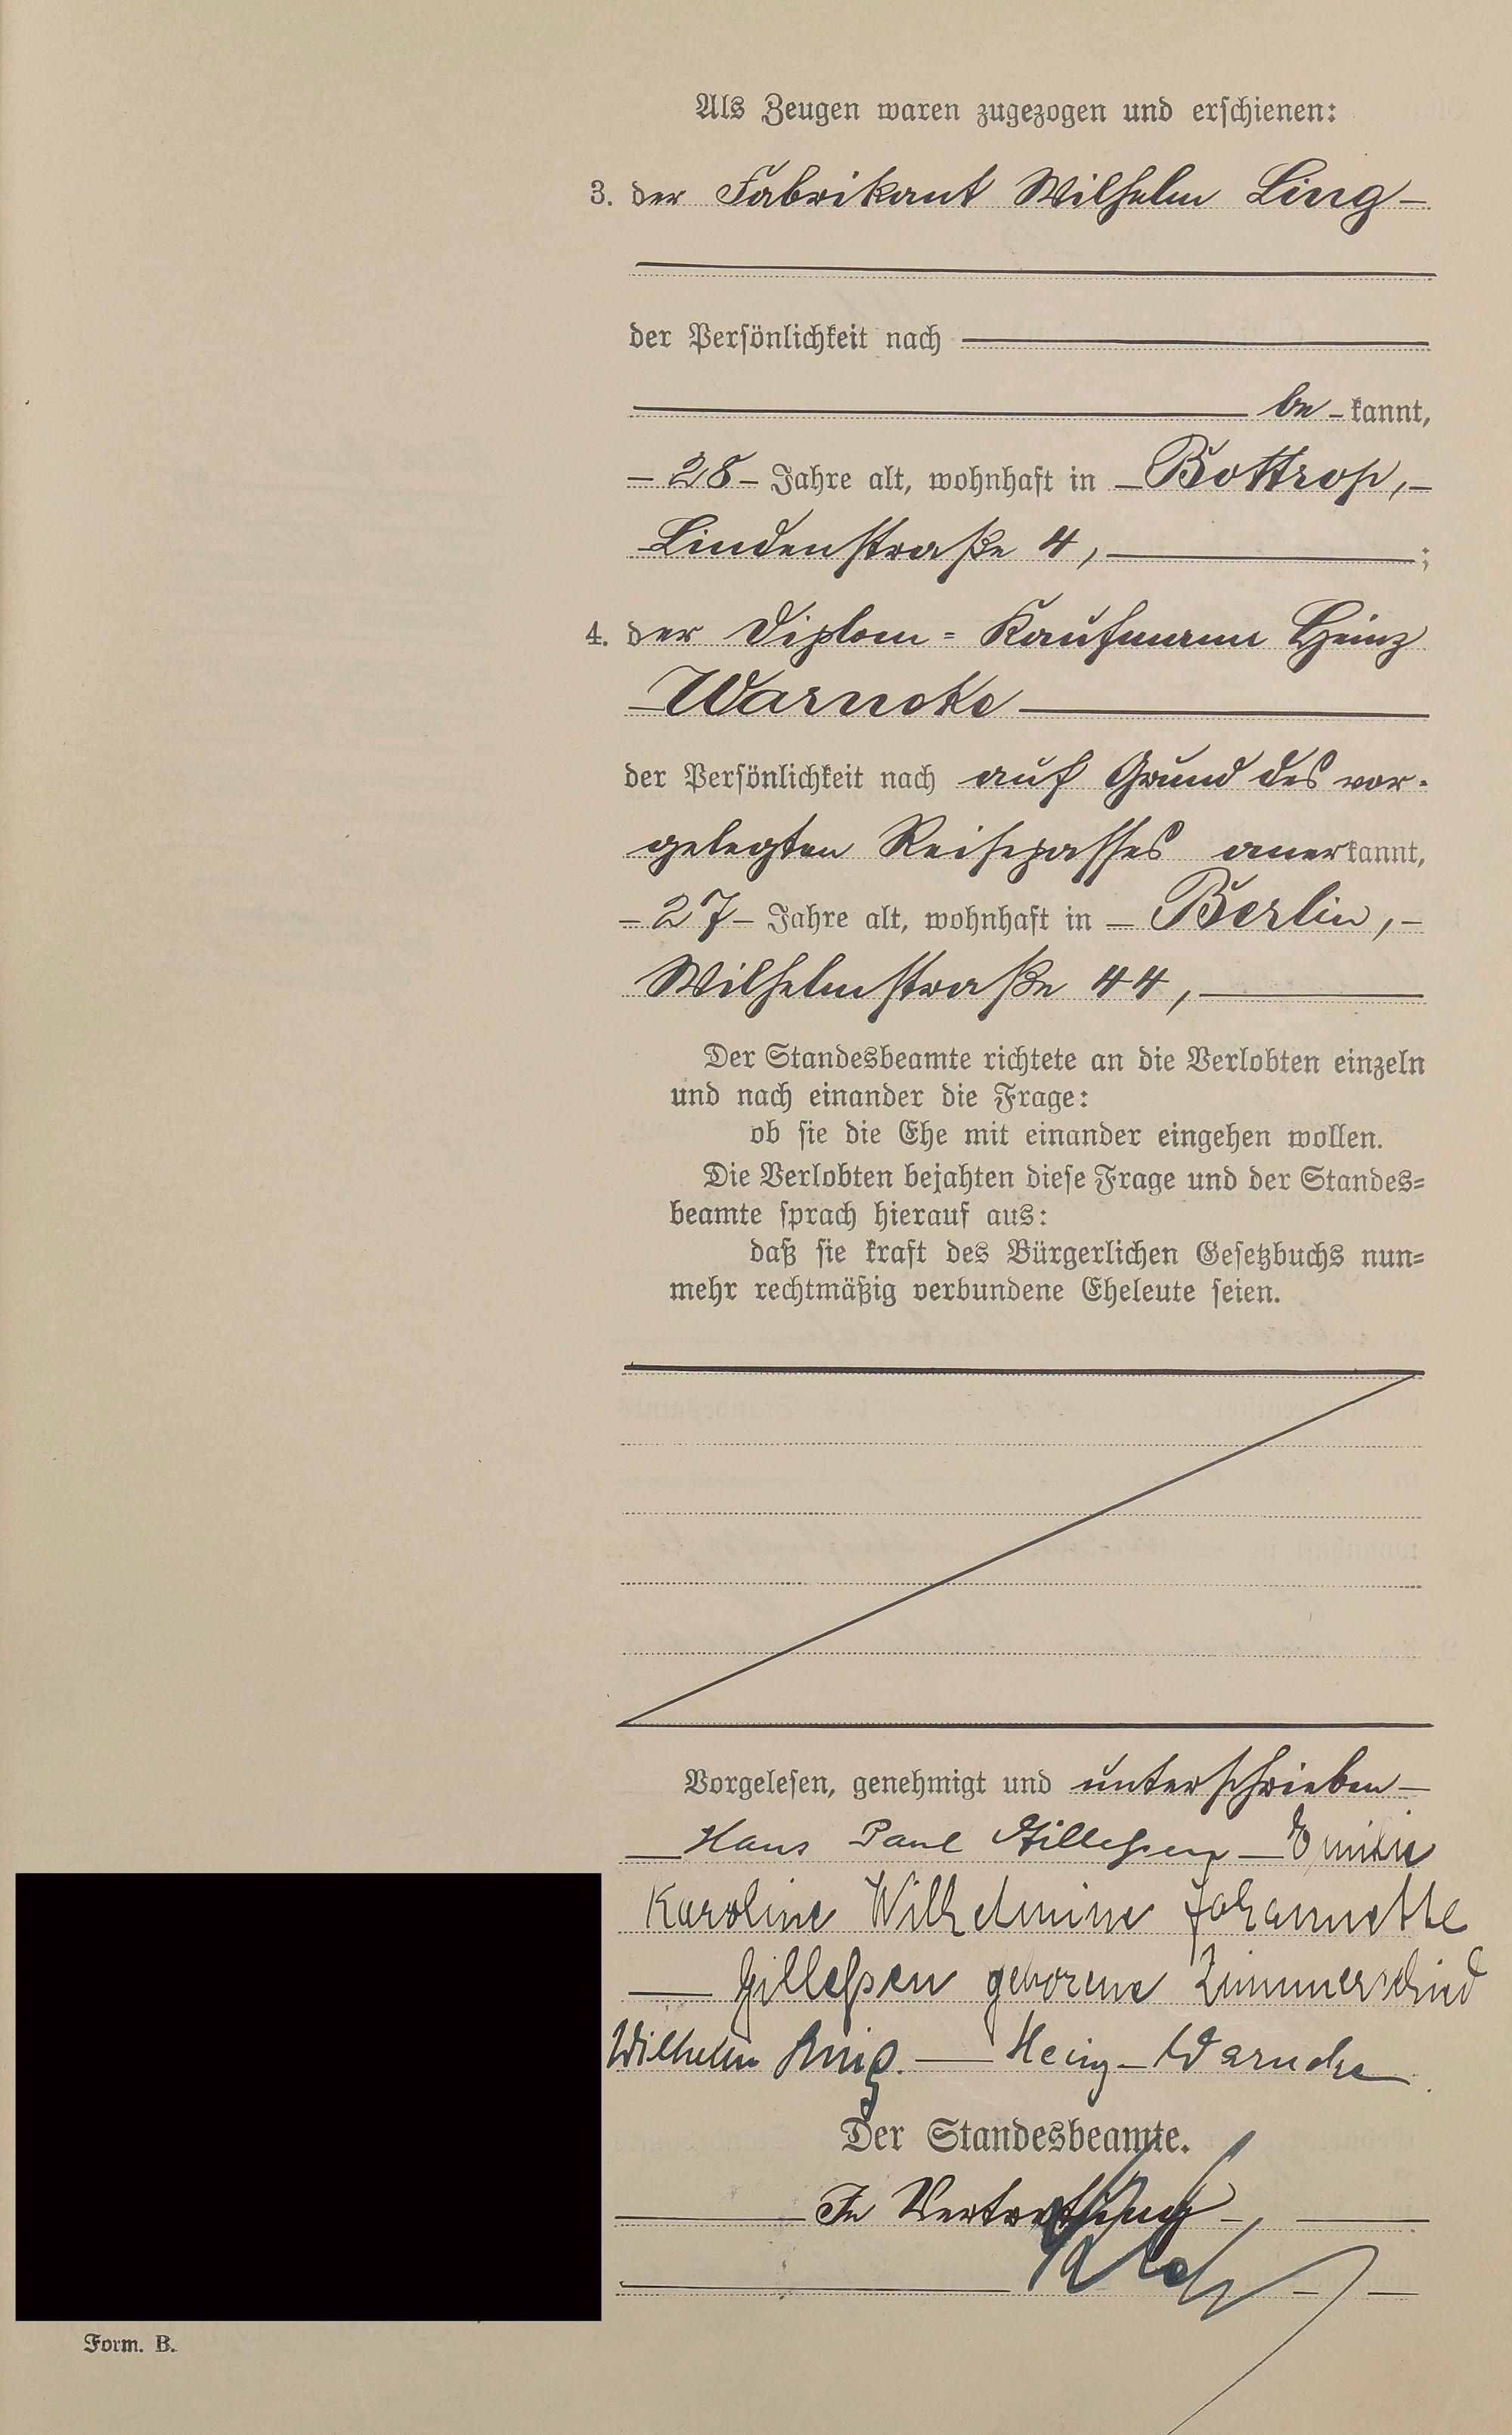 Als Zeugen waren zugezogen und erschienen:
3. der Fabrikant Wilhelm Ling –
der Persönlichkeit nach
be – kannt,
– 28 – Jahre alt, wohnhaft in – Bottrop, –
Lindenstraße 4, ;
4. der Diplom = Kaufmann Heinz
Warneke
der Persönlichkeit nach auf Grund des vor-
gelegten Reisepasses anerkannt,
– 27 – Jahre alt, wohnhaft in – Berlin, –
Wilhelmstraße 44,
Der Standesbeamte richtete an die Verlobten einzeln
und nach einander die Frage:
ob sie die Ehe mit einander eingehen wollen.
Die Verlobten bejahten diese Frage und der Standes=
beamte sprach hierauf aus:
daß sie kraft des Bürgerlichen Gesetzbuchs nun=
mehr rechtmäßig verbundene Eheleute seien.
Vorgelesen, genehmigt und unterschrieben –
Hans Paul Gilleßen – Emilie
Karoline Wilhelmine Johannette
Gilleßen geborene Zimmerschied
Wilhelm Ling. – Heinz Warneke
Der Standesbeamte.
In Vertretung
Form. B.